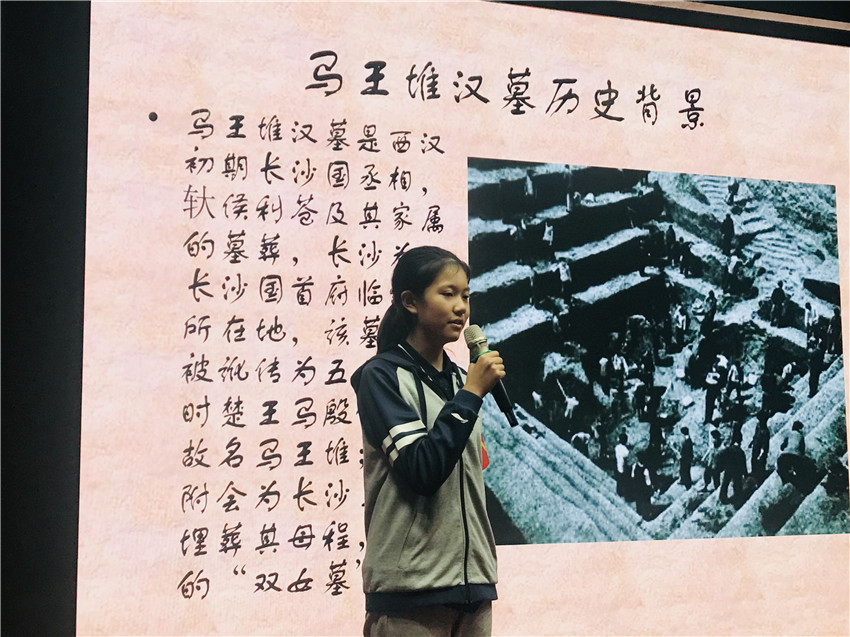 马王堆汉墓历史背景
• 马王堆汉墓是西汉
初期长沙国丞相，
轪侯利苍及其家属
的墓葬，长沙为
长沙国首府临
所在地，该墓
被讹传为五
时楚王马殷
故名马王堆；
附会为长沙
埋葬其母程，
的“双女墓”